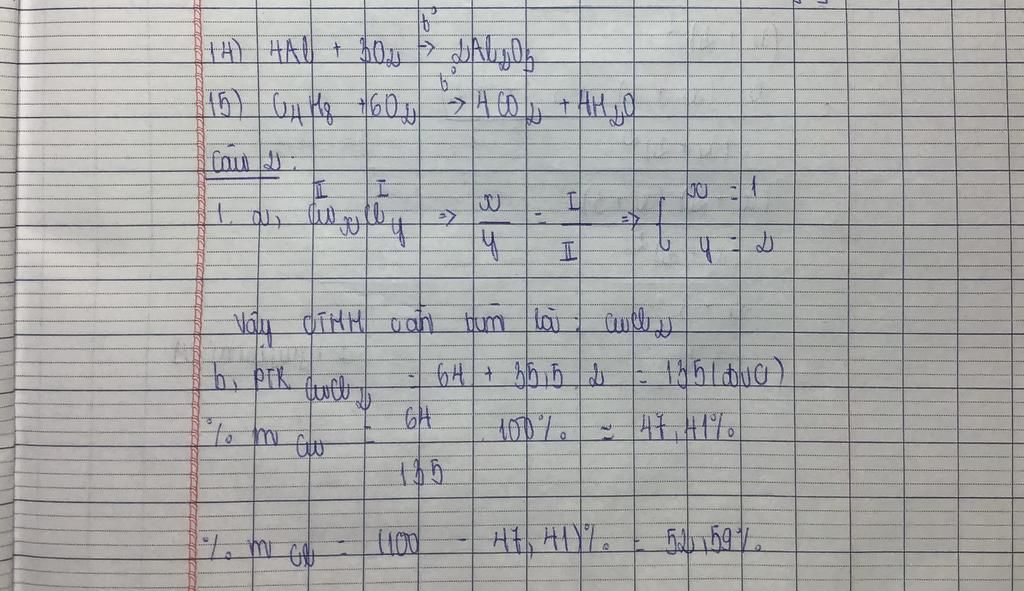 14) 4Al + 3O₂ →^(t°) 2Al₂O₃
15) C₄H₈ + 6O₂ →^(t°) 4CO₂ + 4H₂O
Câu 2:
1. a, Cu^(II)ₓCl^(I)ᵧ => x/y = I/II => { x = 1 y = 2
Vậy CTHH cần tìm là: CuCl₂
b, PTK CuCl₂ = 64 + 35,5 . 2 = 135 (đvC)
% m Cu = 64/135 100% = 47,41%
% m Cl = (100 - 47,41)% = 52,59%